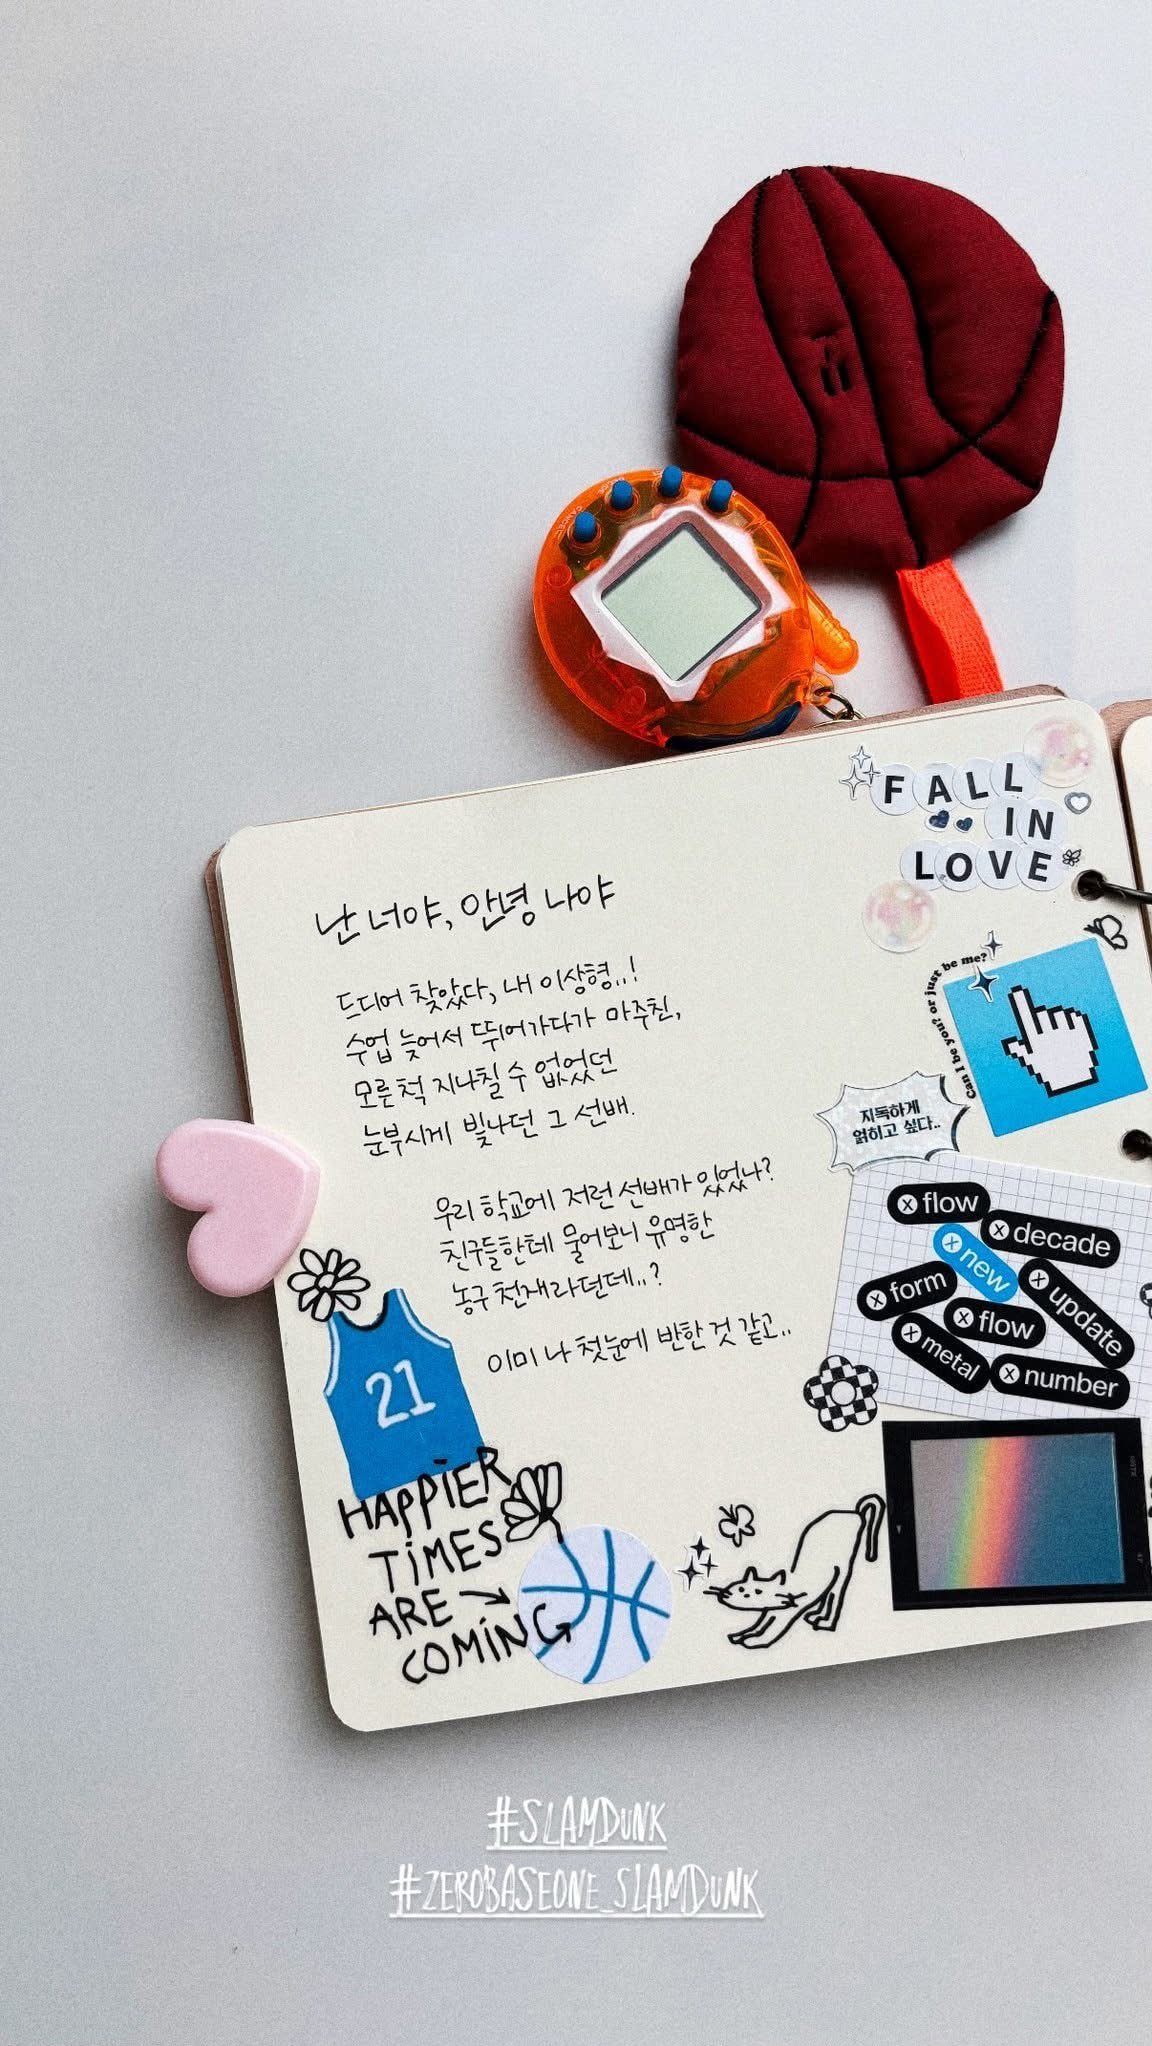 FALL
IN
LOVE
난 너야, 안녕 나야
드디어 찾았다, 내 이상형..!
수업 늦어서 뛰어가다가 마주친,
모른 척 지나칠 수 없었던
눈부시게 빛나던 그 선배.
우리 학교에 저런 선배가 있었나?
친구들한테 물어보니 유명한
농구 천재라던데..?
이미 나 첫눈에 반한 것 같고..
Can I be you? or just be me?
지독하게
얽히고 싶다..
flow
decade
new
form
update
flow
metal
number
21
HAPPIER
TIMES
ARE
COMING
#SLAMDUNK
#ZEROBASEONE_SLAMDUNK